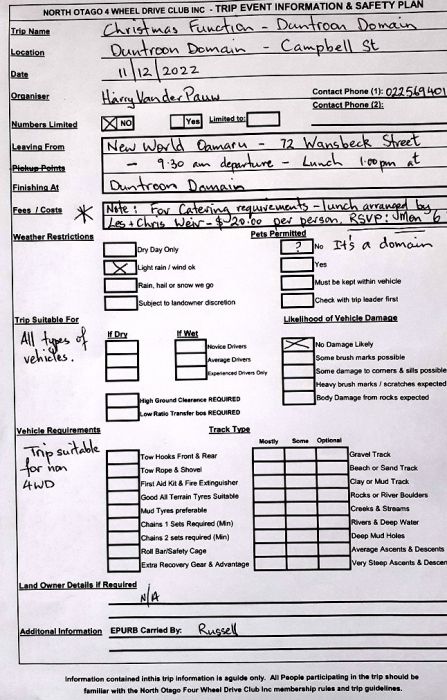 NORTH OTAGO 4 WHEEL DRIVE CLUB INC - TRIP EVENT INFORMATION & SAFETY PLAN
Trip Name Christmas Function - Duntroon Domain
Location Duntroon Domain - Campbell St
Date 11/12/2022
Organiser Harry Van der Pauw Contact Phone (1): 022569401
Contact Phone (2):
Numbers Limited X NO Yes Limited to:
Leaving From New World Oamaru - 72 Wansbeck Street
Pickup Points - 9:30 am departure - Lunch 1.00pm at
Finishing At Duntroon Domain
Fees / Costs * Note: For Catering requirements - lunch arranged by
Les + Chris Weir - $20.00 per person. RSVP: Mon 6
Weather Restrictions Pets Permitted
Dry Day Only ? No It's a domain
X Light rain / wind ok Yes
Rain, hail or snow we go Must be kept within vehicle
Subject to landowner discretion Check with trip leader first
Trip Suitable For Likelihood of Vehicle Damage
All types of vehicles. If Dry If Wet
Novice Drivers X No Damage Likely
Average Drivers Some brush marks possible
Experienced Drivers Only Some damage to corners & sills possible
Heavy brush marks / scratches expected
High Ground Clearance REQUIRED Body Damage from rocks expected
Low Ratio Transfer box REQUIRED
Vehicle Requirements Track Type
Trip suitable for non 4WD Mostly Some Optional
Tow Hooks Front & Rear Gravel Track
Tow Rope & Shovel Beach or Sand Track
First Aid Kit & Fire Extinguisher Clay or Mud Track
Good All Terrain Tyres Suitable Rocks or River Boulders
Mud Tyres preferable Creeks & Streams
Chains 1 Sets Required (Min) Rivers & Deep Water
Chains 2 sets required (Min) Deep Mud Holes
Roll Bar/Safety Cage Average Ascents & Descents
Extra Recovery Gear & Advantage Very Steep Ascents & Descen
Land Owner Details If Required
N/A
Additonal Information EPURB Carried By: Russell
Information contained inthis trip information is aguide only. All People participating in the trip should be
familiar with the North Otago Four Wheel Drive Club Inc membership rules and trip guidelines.